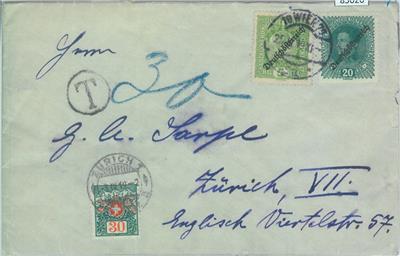 83620
10 WIEN
Deutschösterreich
Deutschösterreich
20
Herrn
T
30
G. A. Sarpe
ZÜRICH
Zürich, VII.
30
Englisch Viertelstr. 57.